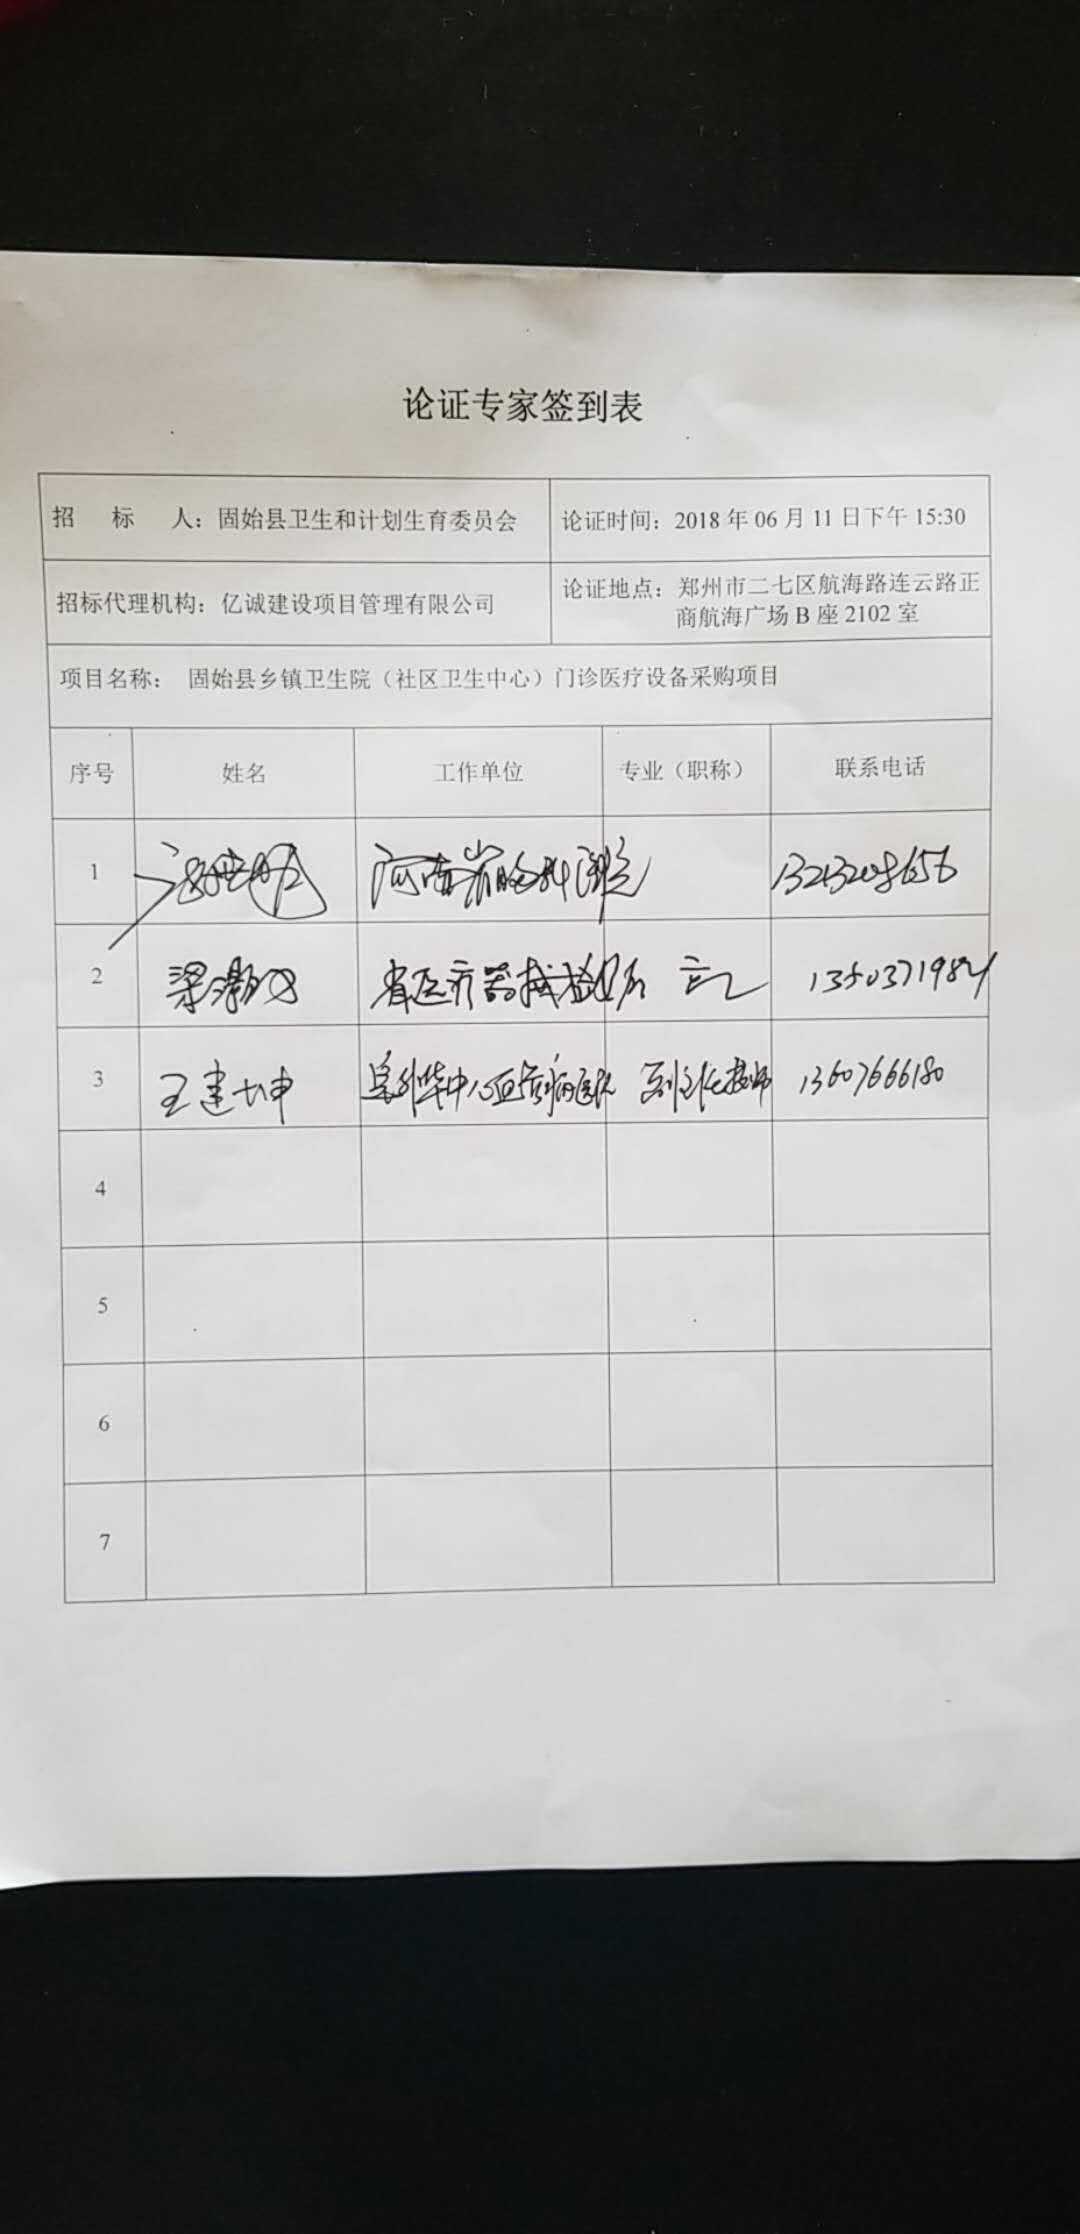 论证专家签到表
招 标 人：固始县卫生和计划生育委员会 论证时间：2018 年 06 月 11 日下午 15:30
招标代理机构：亿诚建设项目管理有限公司 论证地点：郑州市二七区航海路连云路正
商航海广场 B 座 2102 室
项目名称： 固始县乡镇卫生院（社区卫生中心）门诊医疗设备采购项目
序号 姓名 工作单位 专业（职称） 联系电话
1 河南省胸科医院
2 省医疗器械检验所 13503719821
3 王建坤 阜外华中心血管病医院 副主任技师 13607666180
4
5
6
7